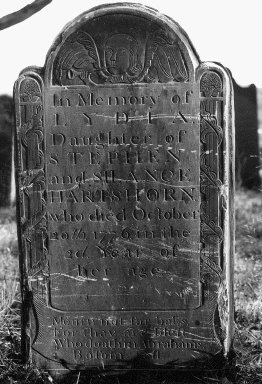 In Memory of
LYDIA
Daughter of
STEPHEN
and SILANCE
HARTSHORN
who died October
20th 1776 in the
2d year of
her age.
Mourn not for
Who doath in Abrahams
Bosom